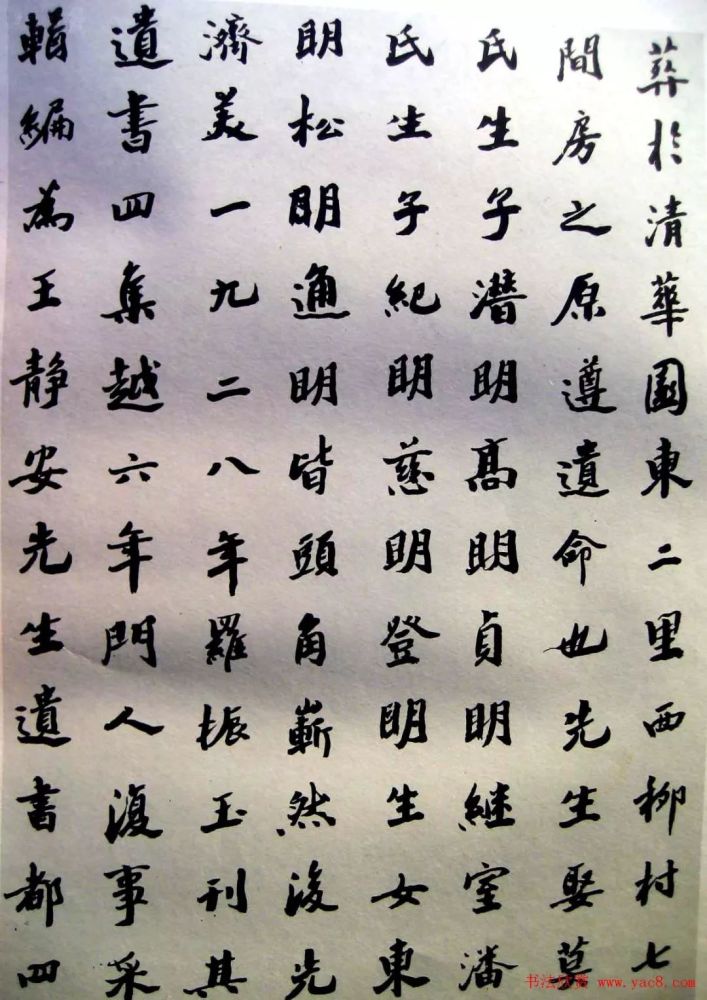 葬於清華園東二里西柳村七
間房之原遵遺命也先生娶莫
氏生子潛明高明貞明継室潘
氏生子紀明慈明登明生女東
明松明通明皆頭角嶄然後先
濟美一九二八年羅振玉刊其
遺書四集越六年門人復事采
輯編為王靜安先生遺書都四
书法欣赏 www.yac8.com